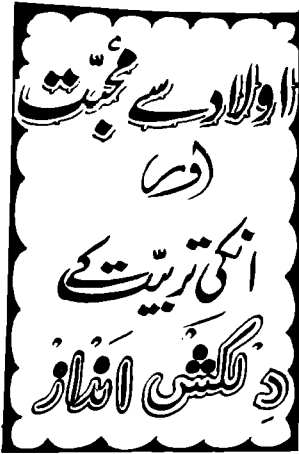 اولاد سے محبّت
اور
انکی تربیّت کے
دِلکَش اَنداز